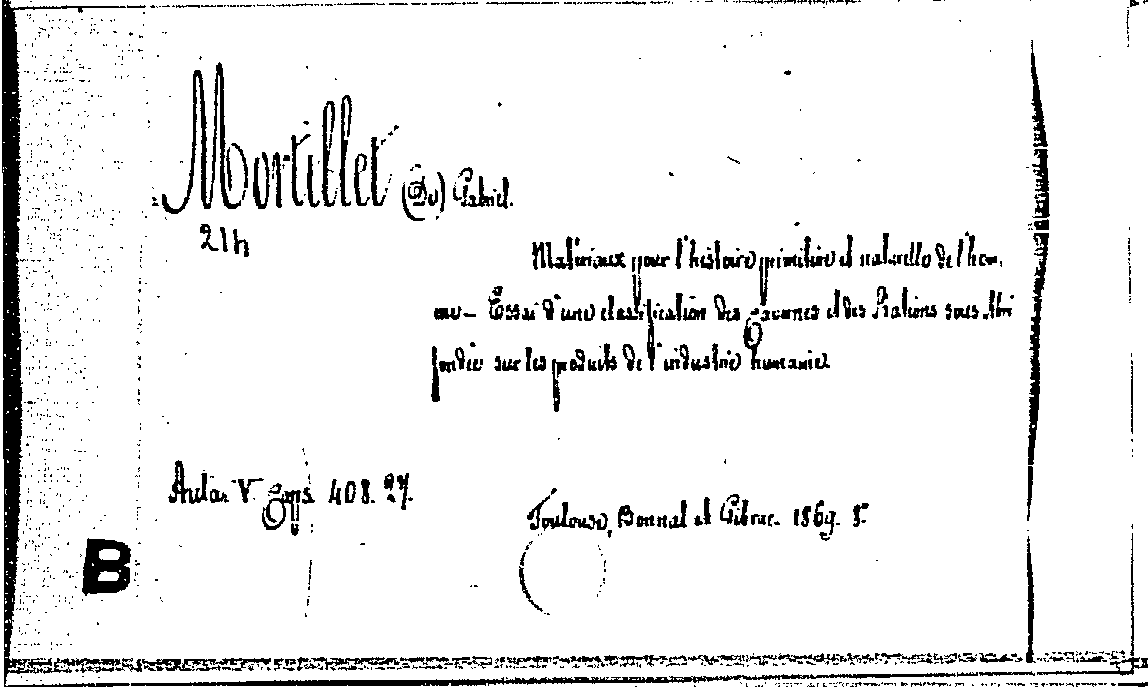 Mortillet (De) Gabriel.
21h
Matériaux pour l'histoire primitive et naturelle de l'hom.
me - Essai d'une classification des Cavernes et des Stations sous Abri
fondée sur les produits de l'industrie humaine
Aula V Opp. 408. 27.
Toulouse, Bonnal et Gibrac. 1869. 8°
B